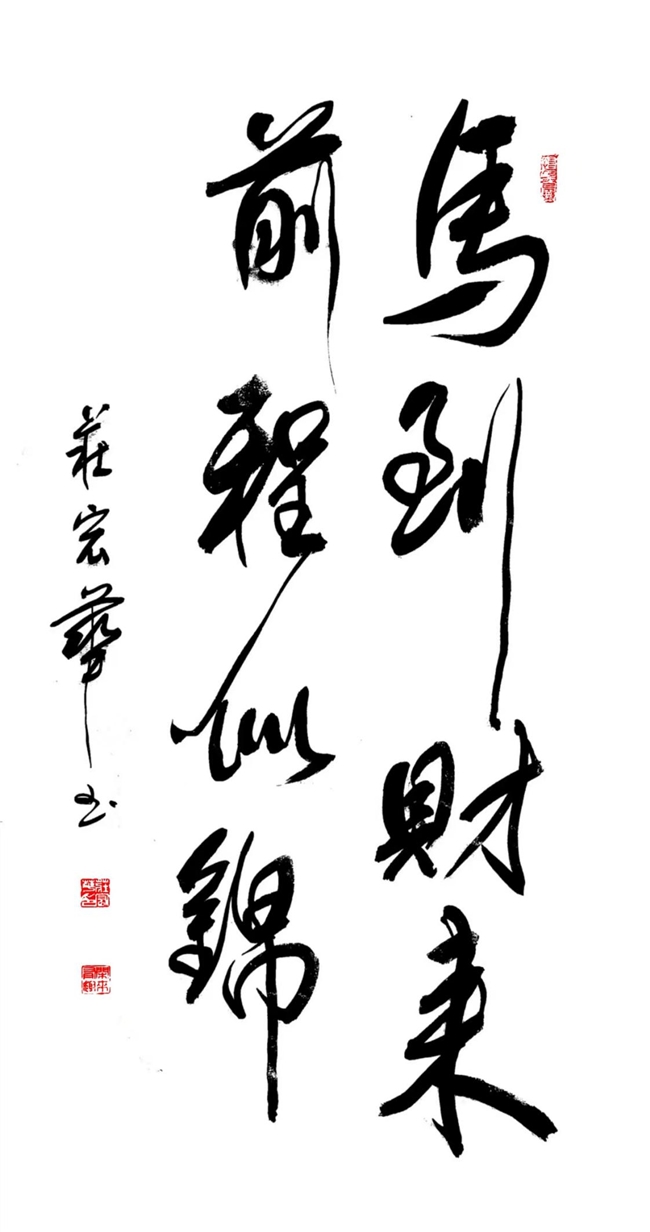 馬到財来
前程似錦
莊宏華书